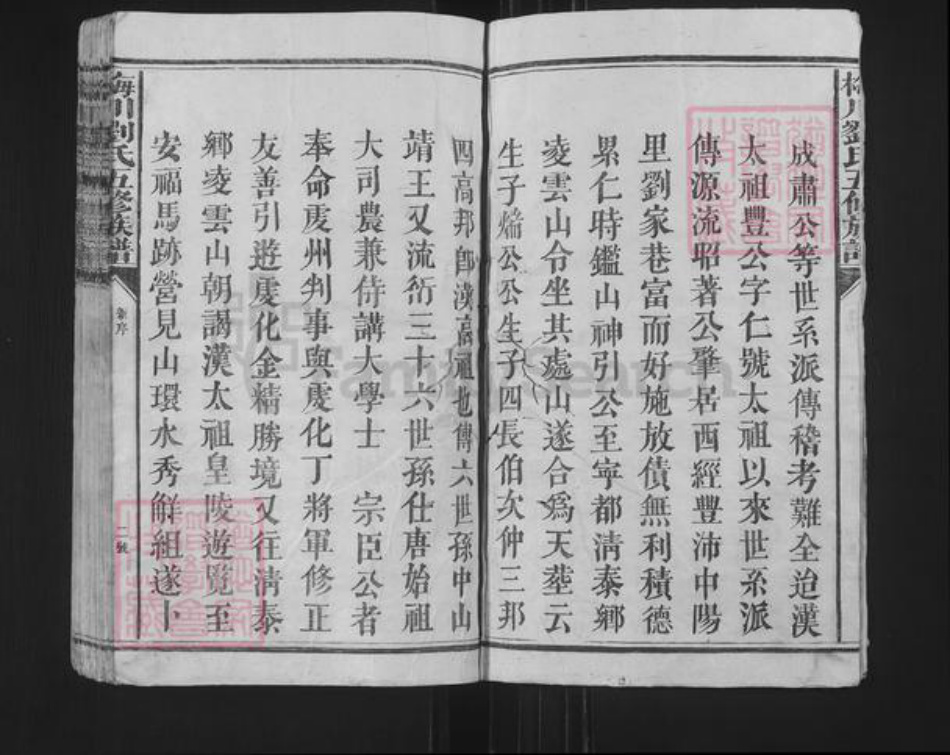 成肅公等世系派傳稽考難全迨漢
太祖豐公字仁號太祖以來世系派
傳源流昭著公肇居西經豐沛中陽
里劉家巷富而好施放債無利積德
累仁時鑑山神引公至寧都清泰鄉
凌雲山令坐其處山遂合爲天塟云
生子煓公公生子四長伯次仲三邦
四高邦卽漢高祖也傳六世孫中山
靖王又流衍三十六世孫仕唐始祖
大司農兼侍講大學士 宗臣公者
奉命虔州判事與虔化丁將軍修正
友善引遊虔化金精勝境又往清泰
鄉凌雲山朝謁漢太祖皇陵遊覽至
安福馬跡營見山環水秀解組遂卜
梅川劉氏五修族譜
梅川劉氏五修族譜
FamilySearch